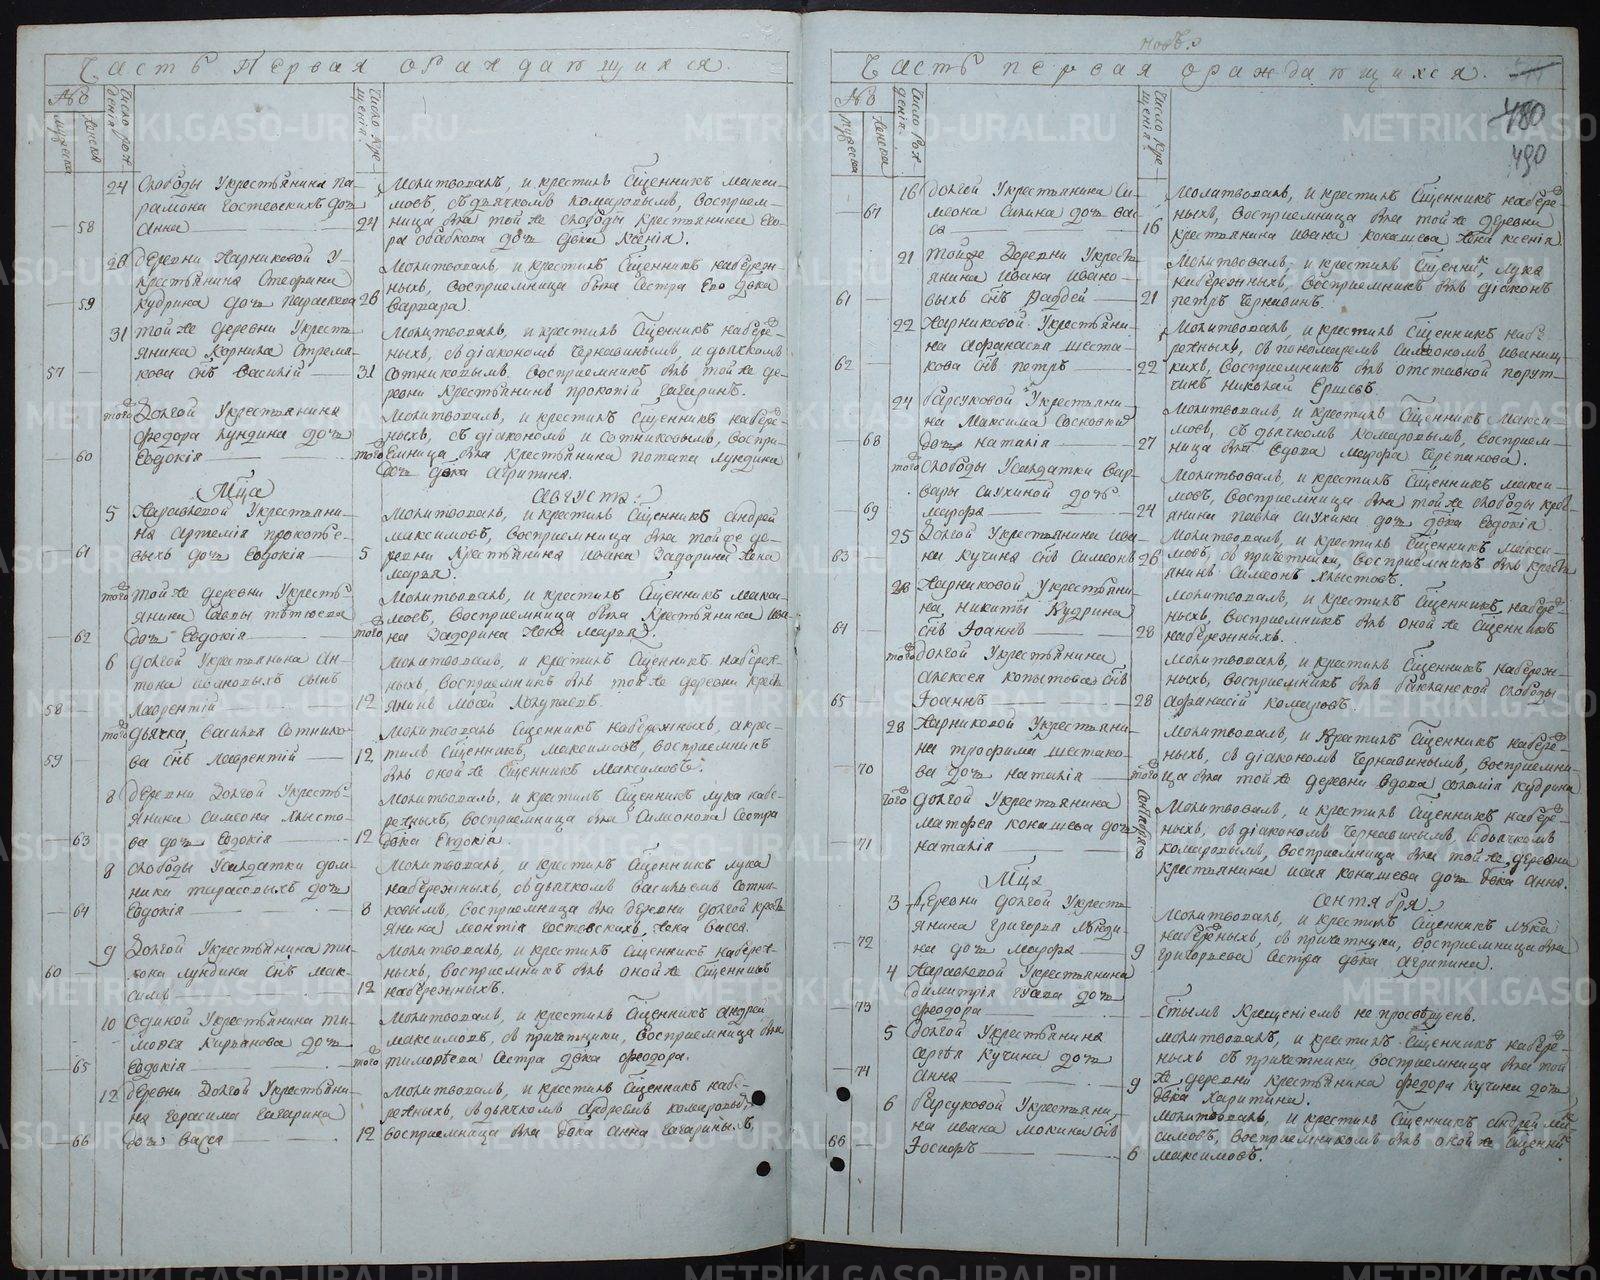 Часть Первая ораждающихся.
№
мужеска
женска
Число рож-
денія.
Число кре-
щенія.
24 Слободы Укрестьянина Па-
рамона Гостевскихъ дочь
58 Анна 24
Молитвовалъ, и крестилъ Сщенникъ Макси-
мовъ, съ дьячкомъ Комаровымъ, восприем-
ница была той же слободы крестьянина
дочь девка Ксенія.
28 деревни Жарниковой У-
крестьянина Стефана
59 Кудрина дочь Параскева 28
Молитвовалъ, и крестилъ Сщенникъ Набереж-
ныхъ, восприемница была Сестра Его девка
Варвара.
31 той же деревни Укресть-
янина Корнила Стрема-
57 кова снъ Василій 31
Молитвовалъ, и крестилъ Сщенникъ Набере-
жныхъ, съ діакономъ Чернавинымъ, и дьячкомъ
Сотниковымъ, восприемникъ былъ той же де-
ревни Крестьянинъ Прокопій Гагаринъ.
того Долгой Укрестьянина
Федора Лундина дочь
60 Евдокія того
Молитвовалъ, и крестилъ Сщенникъ Набере-
жныхъ, съ діакономъ и Сотниковымъ, воспри-
емница была крестьянина Потапа Лундина
дочь девка Агрипина.
Мца Августа.
5 Жаравлевой Укрестьяни-
на Артемія Прокопье-
61 выхъ дочь Евдокія 5
Молитвовалъ, и крестилъ Сщенникъ Андрей
Максимовъ, восприемница была той же де-
ревни Крестьянина Ивана Задорина жена
Марья.
того той же деревни Укресть-
янина Савы
62 дочь Евдокія того
Молитвовалъ, и крестилъ Сщенникъ Макси-
мовъ, восприемница была Крестьянина Ива-
на Задорина жена Марья.
6 Долгой Укрестьянина Ан-
тона сынъ
58 Лаврентій 12
Молитвовалъ, и крестилъ Сщенникъ Набереж-
ныхъ восприемникъ былъ той же деревни крес-
янинъ
того дьячка Василья Сотнико-
59 ва снъ Лаврентій 12
Молитвовалъ Сщенникъ Набережныхъ, а крес-
тилъ Сщенникъ Максимовъ, восприемникъ
былъ оной же Сщенникъ Максимовъ.
8 деревни Долгой Укресть-
янина Симеона Хлысто-
63 ва дочь Евдокія 12
Молитвовалъ, и крестилъ Сщенникъ Лука Набе-
режныхъ, восприемница была Симонова Сестра
девка Евдокія.
8 Слободы Усалдатки Дом-
ники Тарасовыхъ дочь
64 Евдокія 8
Молитвовалъ, и крестилъ Сщенникъ Лука
Набережныхъ, съ дьячкомъ Васильемъ Сотни-
ковымъ, восприемница была деревни Долгой крес-
янина Гостевскихъ, жена Васса.
9 Долгой Укрестьянина Ти-
60 хона Лундина снъ Мак-
симъ 12
Молитвовалъ, и крестилъ Сщенникъ Набереж-
ныхъ, восприемникъ былъ оной же Сщенникъ
Набережныхъ.
10 Единой Укрестьянина Ти-
мофея Кирьянова дочь
65 Евдокія того
Молитвовалъ, и крестилъ Сщенникъ Андрей
Максимовъ, съ причетники, восприемница была
Тимофеева Сестра девка Феодора.
12 деревни Долгой Укрестьяни-
на Герасима Гагарина
66 дочь Васса 12
Молитвовалъ, и крестилъ Сщенникъ Набе-
режныхъ, съ дьячкомъ Андреемъ Комаровымъ,
восприемница была вдова Анна Гагариныхъ.
Часть первая ораждающихся.
480
490
№
мужеска
женска
Число рож-
денія.
Число кре-
щенія.
16 Долгой Укрестьянина Си-
67 меона Силина дочь Вас-
са 16
Молитвовалъ, и крестилъ Сщенникъ Набереж-
ныхъ, восприемница была той же деревни
крестьянина Ивана Конашева жена Ксенія.
21 той же Деревни Укресть-
янина Ивана Ивано-
61 выхъ снъ Фаддей 21
Молитвовалъ, и крестилъ Сщенникъ, Лука
Набережныхъ, восприемникъ былъ діаконъ
Петръ Чернавинъ.
22 Жарниковой Укрестьяни-
на Афанасья Шеста-
62 кова снъ Петръ 22
Молитвовалъ, и крестилъ Сщенникъ Набе-
режныхъ, съ пономаремъ Симеономъ Иваниц-
кихъ, восприемникъ былъ отставной порут-
чикъ Николай Ершевъ.
24 Барсуковой Укрестьяни-
на Максима Сосновки
68 дочь Наталія 27
Молитвовалъ, и крестилъ Сщенникъ Макси-
мовъ, съ дьячкомъ Комаровымъ, восприем-
ница была вдова Марфа Черепанова.
того Слободы Усалдатки Вар-
вары Глухиной дочь
69 Марфа 24
Молитвовалъ, и крестилъ Сщенникъ Макси-
мовъ, восприемница была той же слободы крес-
янина Павла Глухина дочь девка Евдокія.
25 Долгой Укрестьянина Ива-
63 на Кучина снъ Симеонъ 26
Молитвовалъ, и крестилъ Сщенникъ Макси-
мовъ, съ причетники, восприемникъ былъ крест-
янинъ Симеонъ Хлыстовъ.
28 Жарниковой Укрестьяни-
на Никиты Кудрина
64 снъ Іоаннъ 28
Молитвовалъ, и крестилъ Сщенникъ Набереж-
ныхъ, восприемникъ былъ оной же Сщенникъ
Набережныхъ.
того Долгой Укрестьянина
Алексея Копытова снъ
65 Іоаннъ 28
Молитвовалъ, и крестилъ Сщенникъ Набереж-
ныхъ, восприемникъ былъ слободы
Афанасій Комаровъ.
28 Жарниковой Укрестьяни-
на Трофима Шестако-
70 ва дочь Наталія того
Молитвовалъ, и Крестилъ Сщенникъ Набереж-
ныхъ, съ діакономъ Чернавинымъ, восприемни-
ца была той же деревни вдова Соломія Кудрина
того Долгой Укрестьянина
Матфея Конашева дочь
71 Наталія Сентября 8
Молитвовалъ, и крестилъ Сщенникъ Набереж-
ныхъ, съ діакономъ Чернавинымъ, и дьячкомъ
Комаровымъ, восприемница была той же, деревни
крестьянина Исая Конашева дочь девка Анна.
Мца Сентября.
3 Деревни Долгой Укресть-
янина Григорья Лунди-
72 на дочь Марфа 9
Молитвовалъ, и крестилъ Сщенникъ Лука
Набережныхъ, съ причетники, восприемница была
Григорьева Сестра девка Агрипина.
4 Жаравлевой Укрестьянина
Димитрія Гусева дочь
73 Феодора
Стымъ Крещеніемъ не просвещенъ.
5 Долгой Укрестьянина
Сергея Кучина дочь
74 Анна 9
Молитвовалъ, и крестилъ Сщенникъ Набереж-
ныхъ съ причетники, восприемница была той
же деревни крестьянина Федора Кучина дочь
девка Харитина.
6 Барсуковой Укрестьяни-
на Ивана Мокина снъ
66 Іосифъ 6
Молитвовалъ, и крестилъ Сщенникъ Андрей Мак-
симовъ, восприемникомъ былъ оной же Сщенникъ
Максимовъ.
METRIKI.GASO-URAL.RU